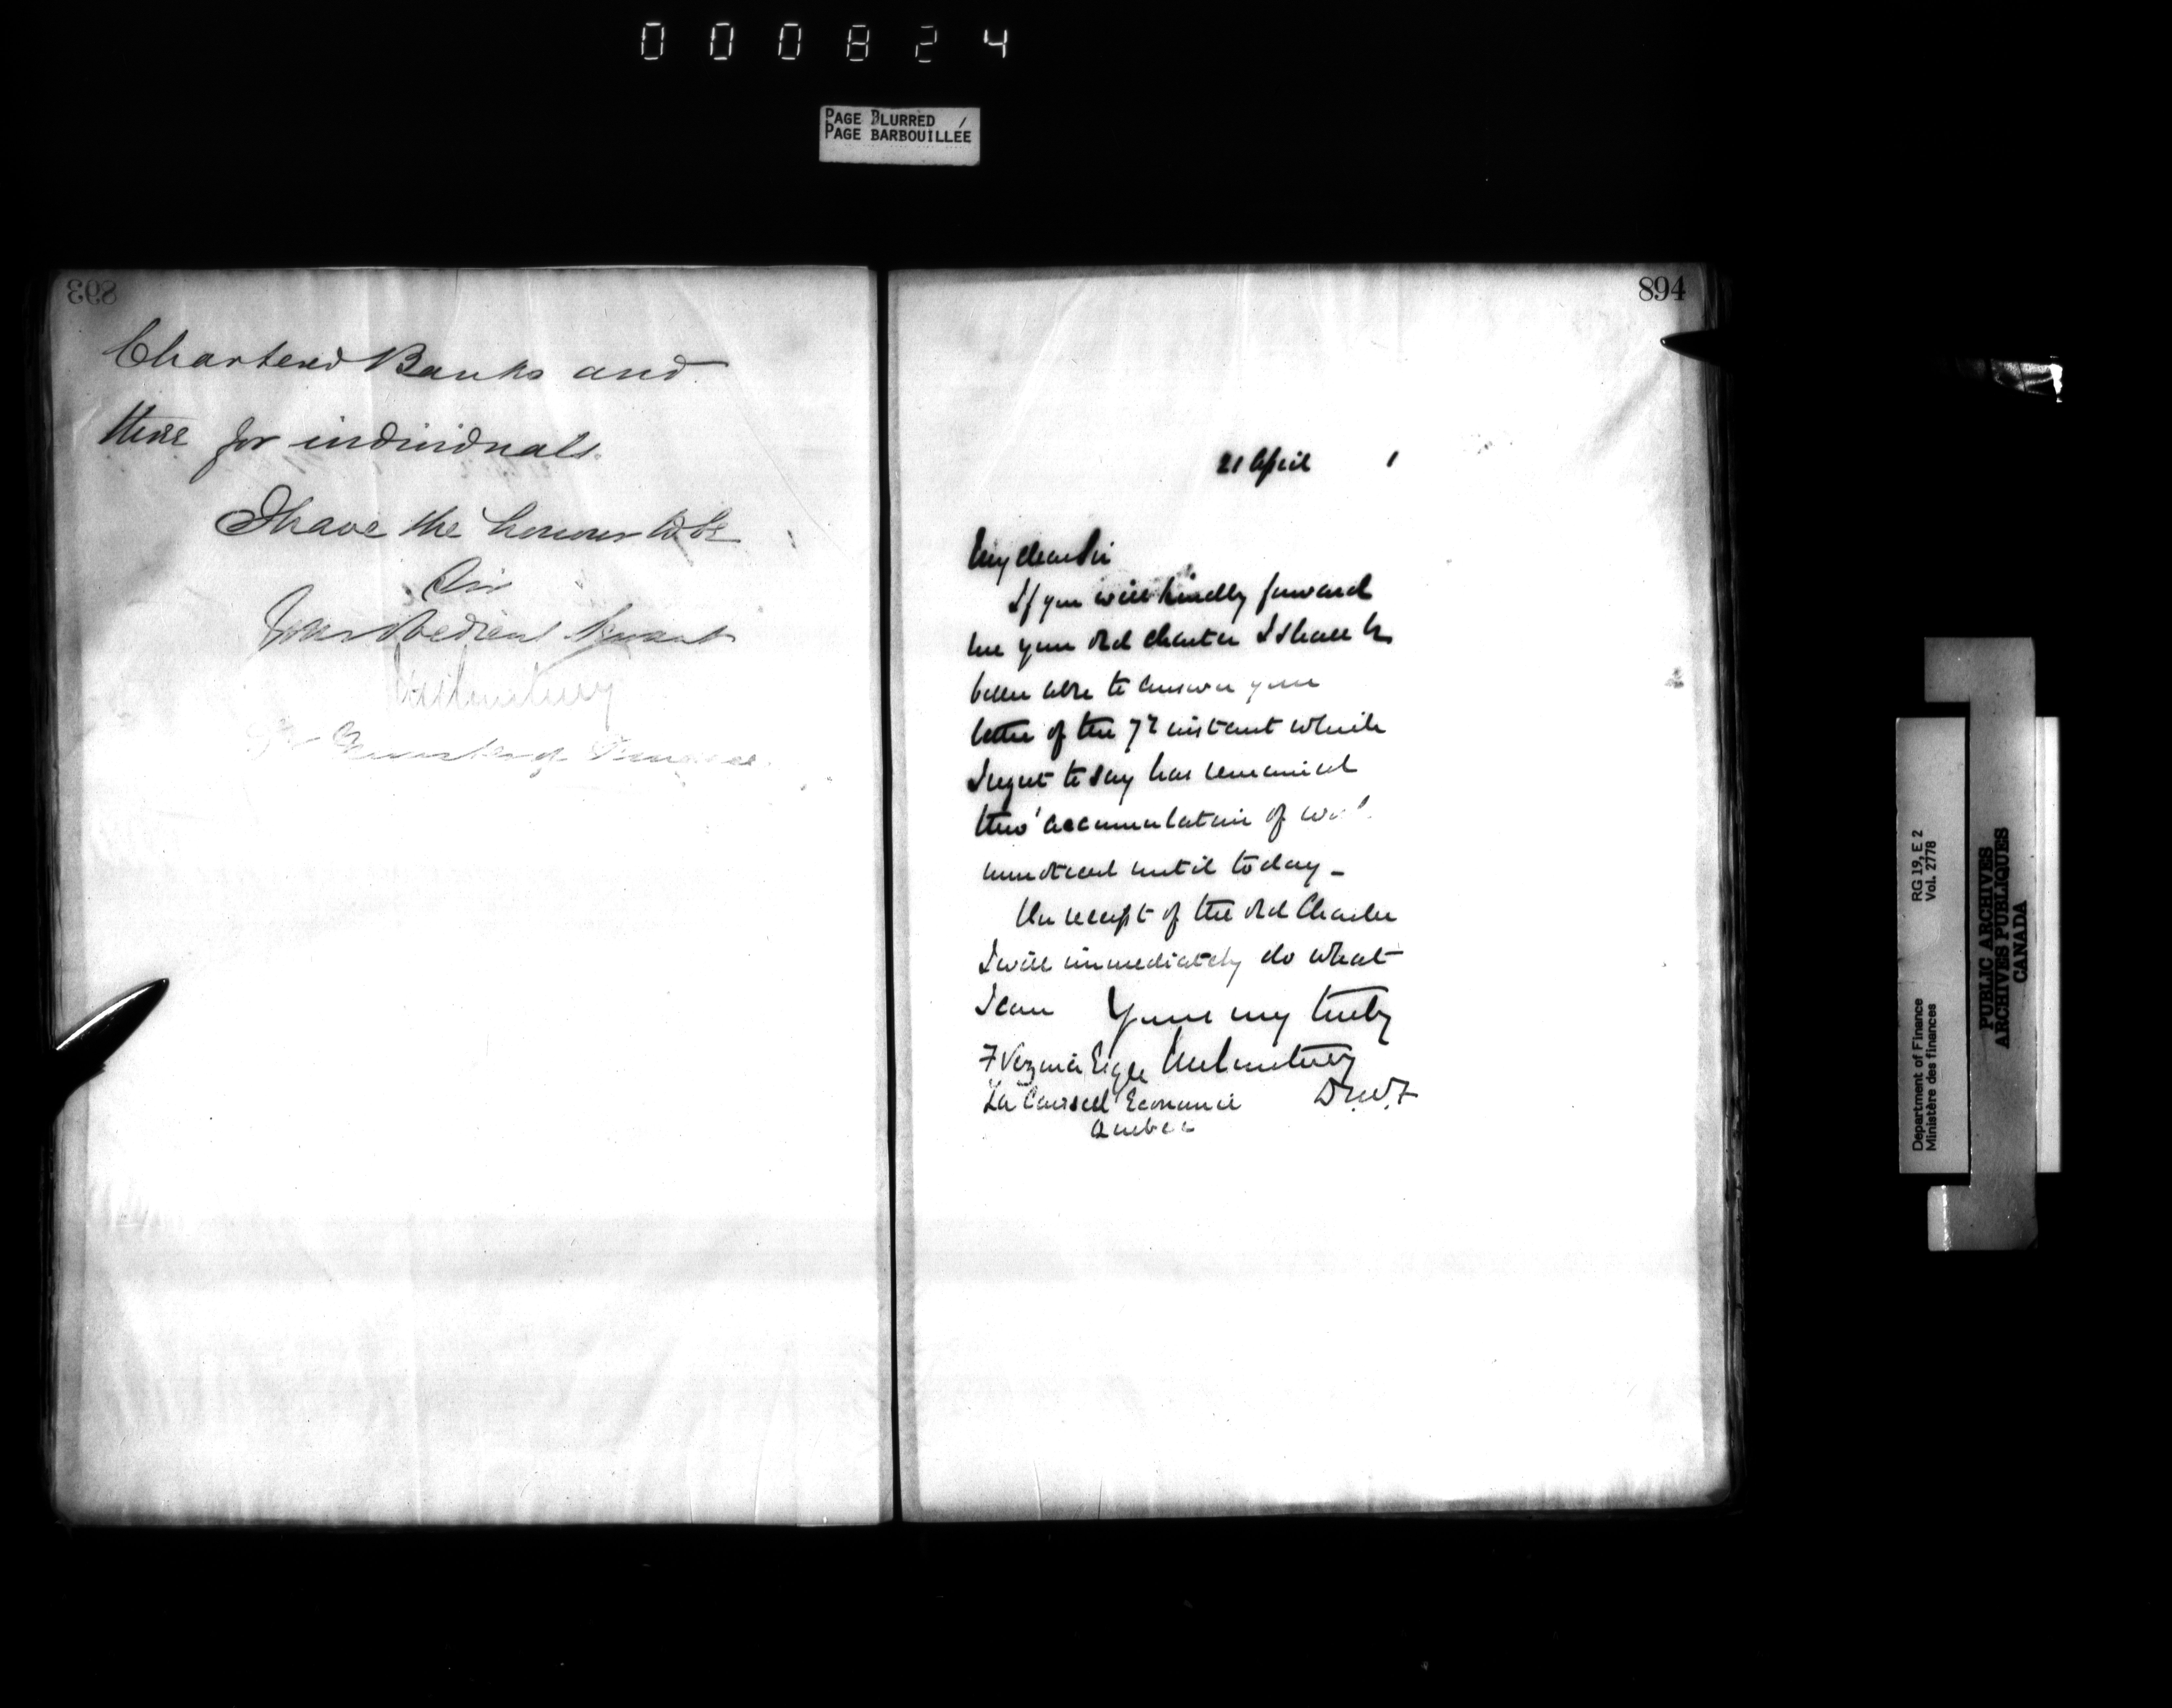 000824
PAGE BLURRED
PAGE BARBOUILLÉE
893
Chartered Banks and
those for individuals.
I have the honour to be
Sir
Your obedient Servant
Courtney
Minister of Finance
894
21 April 1
My dear Sir
If you will kindly forward
me your old charter I shall be
better able to answer your
letter of the 7th instant which
I regret to say has remained
thro' accumulation of
unnoticed until today _
On receipt of the old Charter
I will immediately do what
I can Yours very truly
F Vezina Esqre Courtney
La Caisse d'Economie D.M.F
Quebec
Department of Finance RG 19, E 2
Ministère des finances Vol. 2778
PUBLIC ARCHIVES
ARCHIVES PUBLIQUES
CANADA